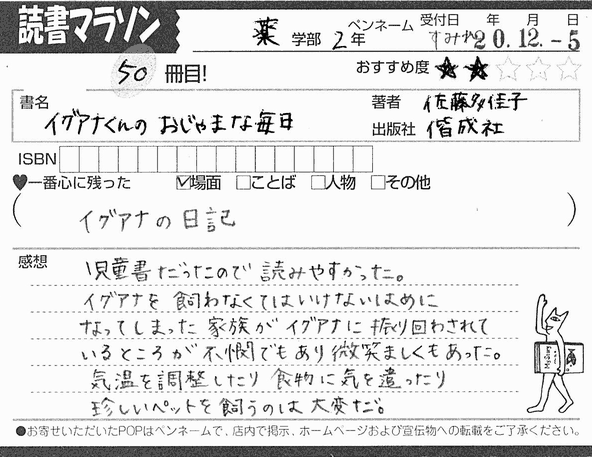 読書マラソン
薬 学部 2年 ペンネーム すみれ 受付日 年 月 日
20.12.-5
50 冊目!
おすすめ度 ★★☆☆☆
書名 イグアナくんの おじゃまな毎日
著者 佐藤多佳子
出版社 偕成社
ISBN
♥一番心に残った ☑場面 □ことば □人物 □その他
(イグアナの日記)
感想
児童書だったので 読みやすかった。
イグアナを 飼わなくてはいけないはめに
なってしまった 家族が イグアナに 振り回されて
いるところが 不憫でもあり 微笑ましくもあった。
気温を調整したり 食物に気を遣ったり
珍しいペットを飼うのは 大変だ。
●お寄せいただいたPOPはペンネームで、店内で掲示、ホームページおよび宣伝物への転載をご了承ください。